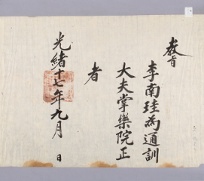 教旨
李南珪為通訓
大夫掌樂院正
者
光緒十七年九月 日